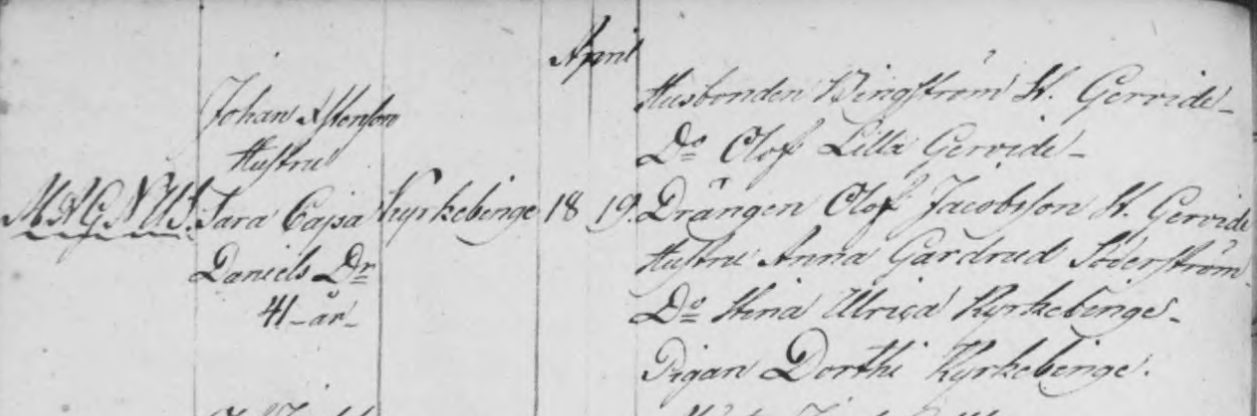 April
Johan Astenson
Hustru
Sara Cajsa
Daniels Dr
41 - år -
MAGNUS.
Kyrkebinge
18
19.
Husbonden Bingström St. Gervide -
Do Olof Lilla Gervide -
Drängen Olof Jacobsson St. Gervide
Hustru Anna Gardrud Söderström
Do Stina Ulrica Kyrkebinge -
Pigan Dorthi Kyrkebinge.